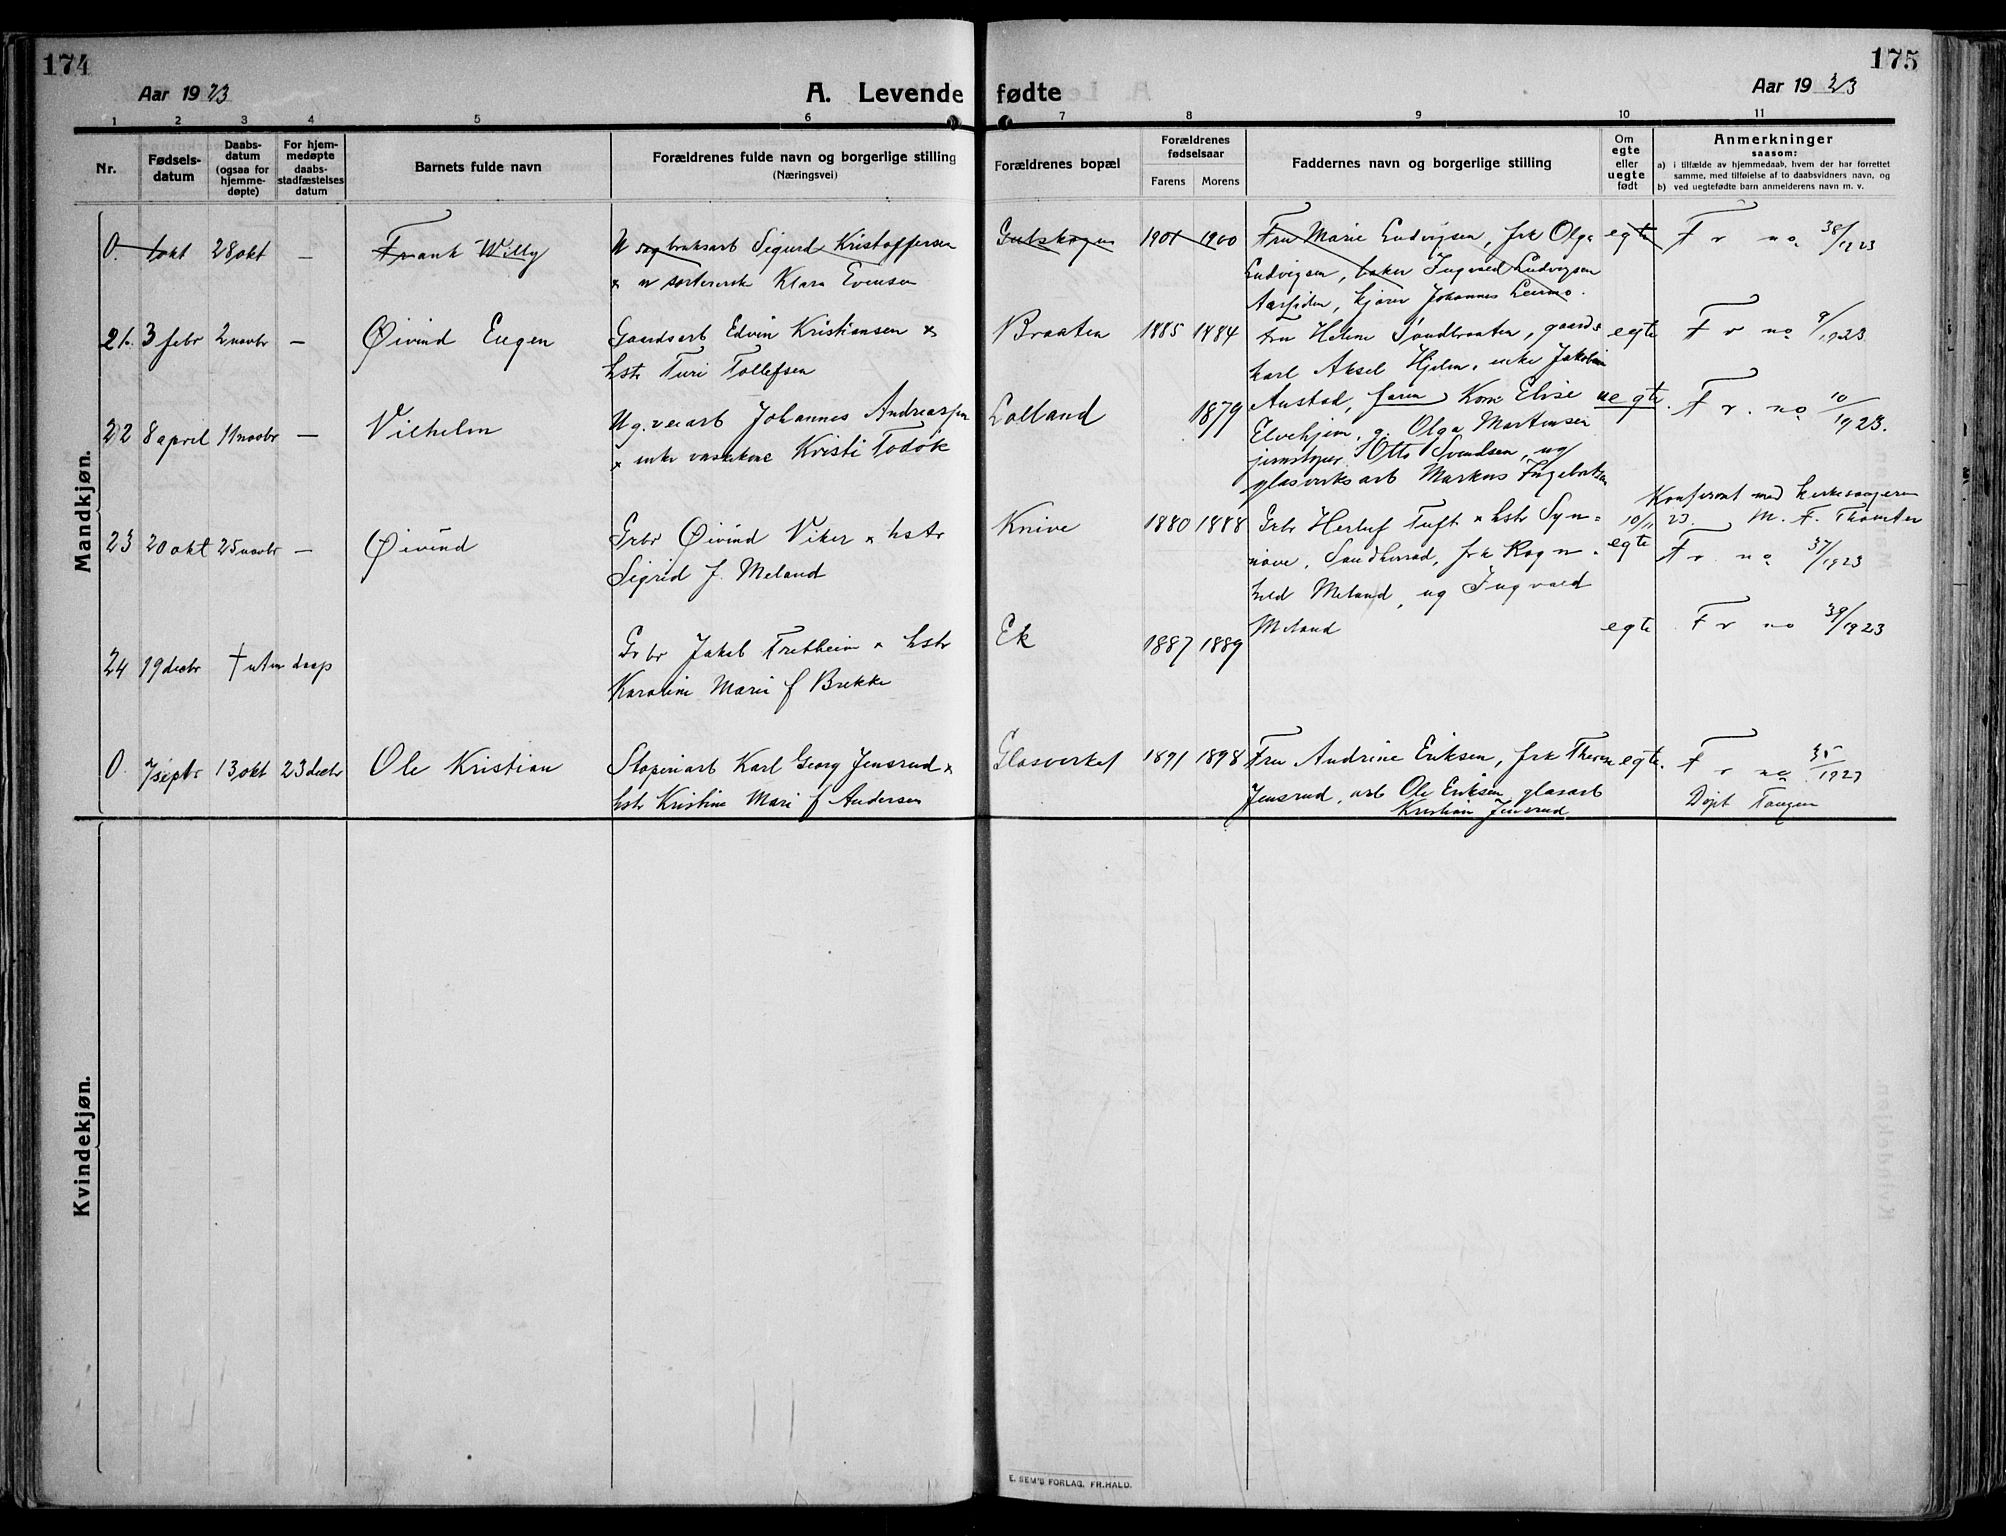 174
175
Aar 1923
A. Levende fødte
Aar 1923
1 2 3 4 5 6 7 8 9 10 11
Nr.
Fødsels-
datum
Daabs-
datum
(ogsaa for
hjemme-
døpte)
For hjem-
medøpte
daabs-
stadfæstelses
datum
Barnets fulde navn
Forældrenes fulde navn og borgerlige stilling
(Næringsvei)
Forældrenes bopæl
Forældrenes
fødselsaar
Farens Morens
Faddernes navn og borgerlige stilling
Om
egte
eller
uegte
født
Anmerkninger
saasom:
a) i tilfælde av hjemmedaab, hvem der har forrettet
samme, med tilføielse av to daabsvidners navn, og
b) ved uegtefødte barn anmelderens navn m. v.
Mandkjøn.
0. 1 okt 28 okt — Frank Willy
U sagbruksarb Sigurd Kristoffersen
x u sortererske Klara Evensen
Gulskogen 1901 1900
Fru Marie Ludvigsen, frk Olga
Ludvigsen, baker Ingvald Ludvigsen
Aassiden, kjører Johannes Leirmo.
egte
F r no 38/1923
21. 3 febr 2 novbr — Øivind Eugen
Gaardsarb Edvin Kristiansen x
hstr Turi Tollefsen
Braaten 1885 1884
Fru Helene Sandbraaten, gaards
karl Aksel Hjelm, enke Jakobine
Austad, faren
egte
F r no 9/1923
22 8 april 11 novbr — Vilhelm
Ug. veiarb Johannes Andreassen
x enke vaskekone Kristi Todøk
Lolland 1879
Kone Elise
Elvehjem, g. Olga Martinsen
jernstøper Otto Svendsen, ug
glasverksarb Markus Ingebretsen
uegte.
F r. no 10/1923.
Konferert med kirkesangeren
10/11 23. M. F. Thometer
23 20 okt 25 novbr — Øivind
Grbr Øivind Viker x hstr
Sigrid f. Meland
Knive 1880 1888
Grbr Herluf Tuft x hstr Syn=
nøve, Sandherrad, frk Ragn=
hild Meland, ug Ingvald
Meland
egte
F r. no 37/1923
24 19 decbr † uten daap
Grbr Jakob Fretheim x hstr
Karoline Marie f Brekke
Ek 1887 1889
egte
F r no 39/1923
0. 7 septbr 13 okt 23 decbr Ole Kristian
Støperiarb Karl Georg Jensrud x
hstr Kristine Mari f Andersen
Glasverket 1891 1898
Fru Andrine Eriksen, frk Therese
Jensrud, arb Ole Eriksen, glasarb
Kristian Jensrud
egte.
F r no 35/1923
Døpt Tangen
Kvindekjøn.
E. SEM'S FORLAG, FR.HALD.